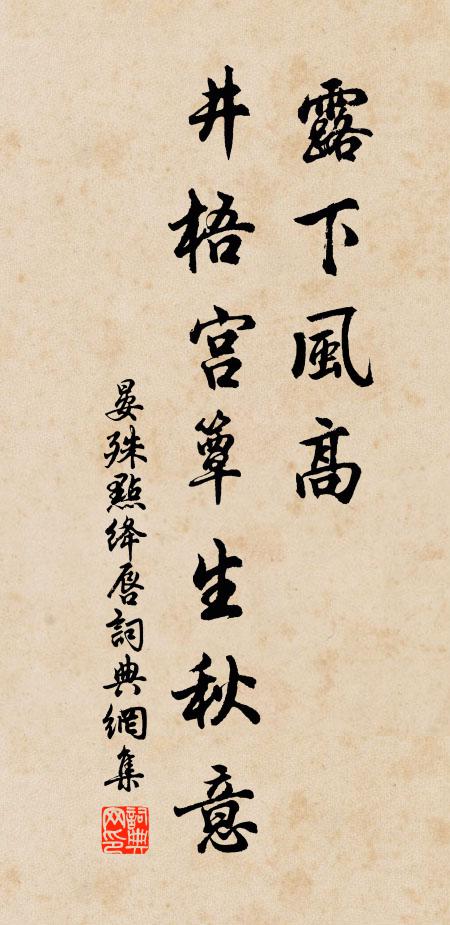 露下風高
井梧宮簟生秋意
晏殊點绛唇詞典網集
詞典網印